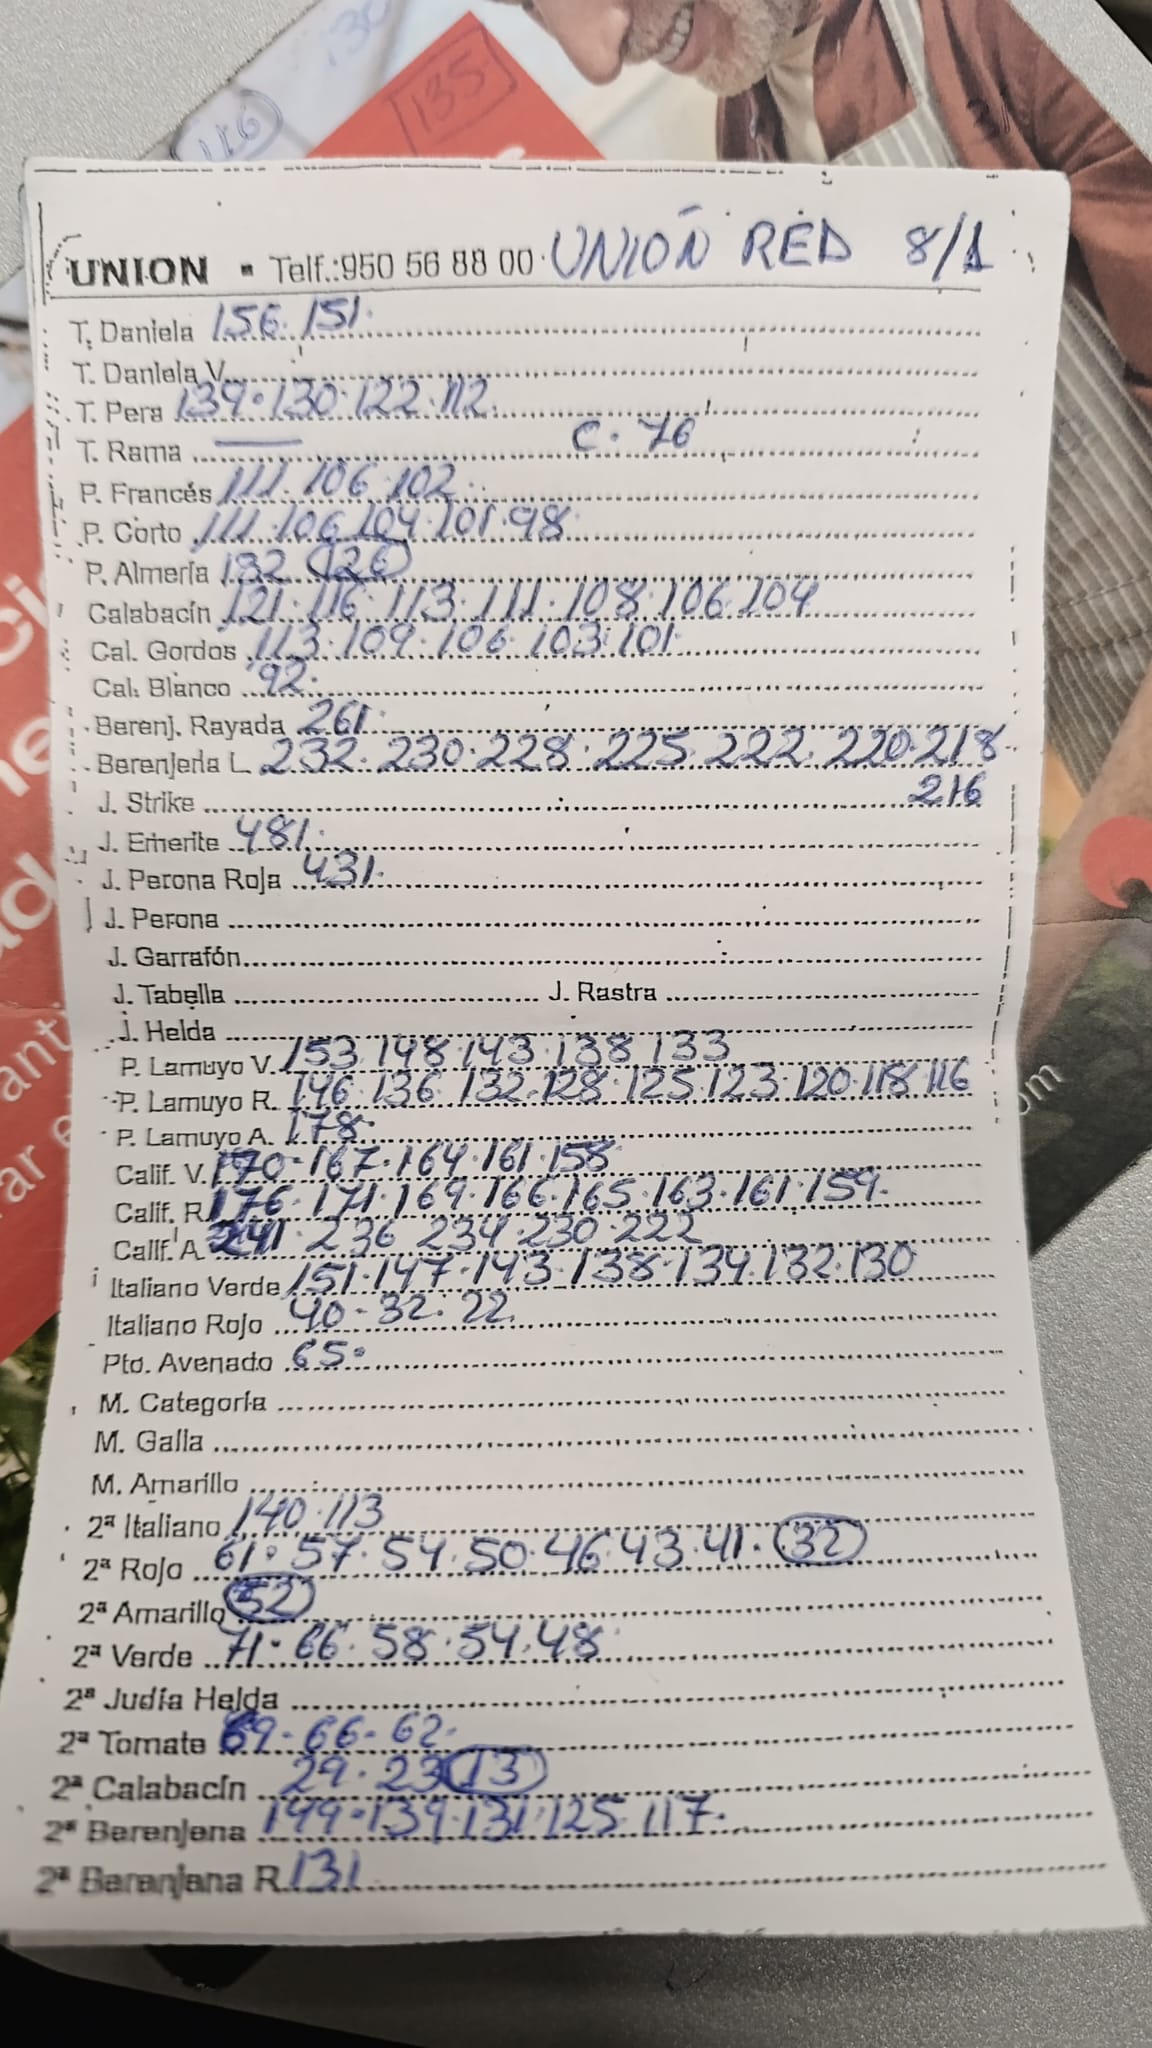 UNION • Telf.:950 56 88 00 UNIÓN RED 8/1
T. Daniela 156. 151.
T. Daniela V.
T. Pera 139. 130. 122. 112.
T. Rama — C. 76
P. Francés 111. 106. 102.
P. Corto 111. 106. 104. 101. 98
P. Almería 132 126
Calabacín 121. 116. 113. 111. 108. 106. 104
Cal. Gordos 113. 109. 106. 103. 101.
Cal. Blanco 92.
Berenj. Rayada 261.
Berenjena L. 232. 230. 228. 225. 222. 220. 218
J. Strike 216
J. Emerite 481.
J. Perona Roja 431.
J. Perona
J. Garrafón
J. Tabella J. Rastra
J. Helda
P. Lamuyo V. 153. 148. 143. 138. 133
P. Lamuyo R. 146. 136. 132. 128. 125. 123. 120. 118. 116
P. Lamuyo A. 178.
Calif. V. 170. 167. 164. 161. 158
Calif. R. 176. 171. 169. 166. 165. 163. 161. 159.
Calif. A. 241. 236. 234. 230. 222
Italiano Verde 151. 147. 143. 138. 134. 132. 130
Italiano Rojo 40. 32. 22.
Pto. Avenado 65.
M. Categoría
M. Galia
M. Amarillo
2ª Italiano 140. 113
2ª Rojo 61. 57. 54. 50. 46. 43. 41. 32
2ª Amarillo 52
2ª Verde 71. 66. 58. 54. 48
2ª Judía Helda
2ª Tomate 69. 66. 62.
2ª Calabacín 29. 23 13
2ª Berenjena 139. 131. 125. 117.
2ª Berenjena R. 131